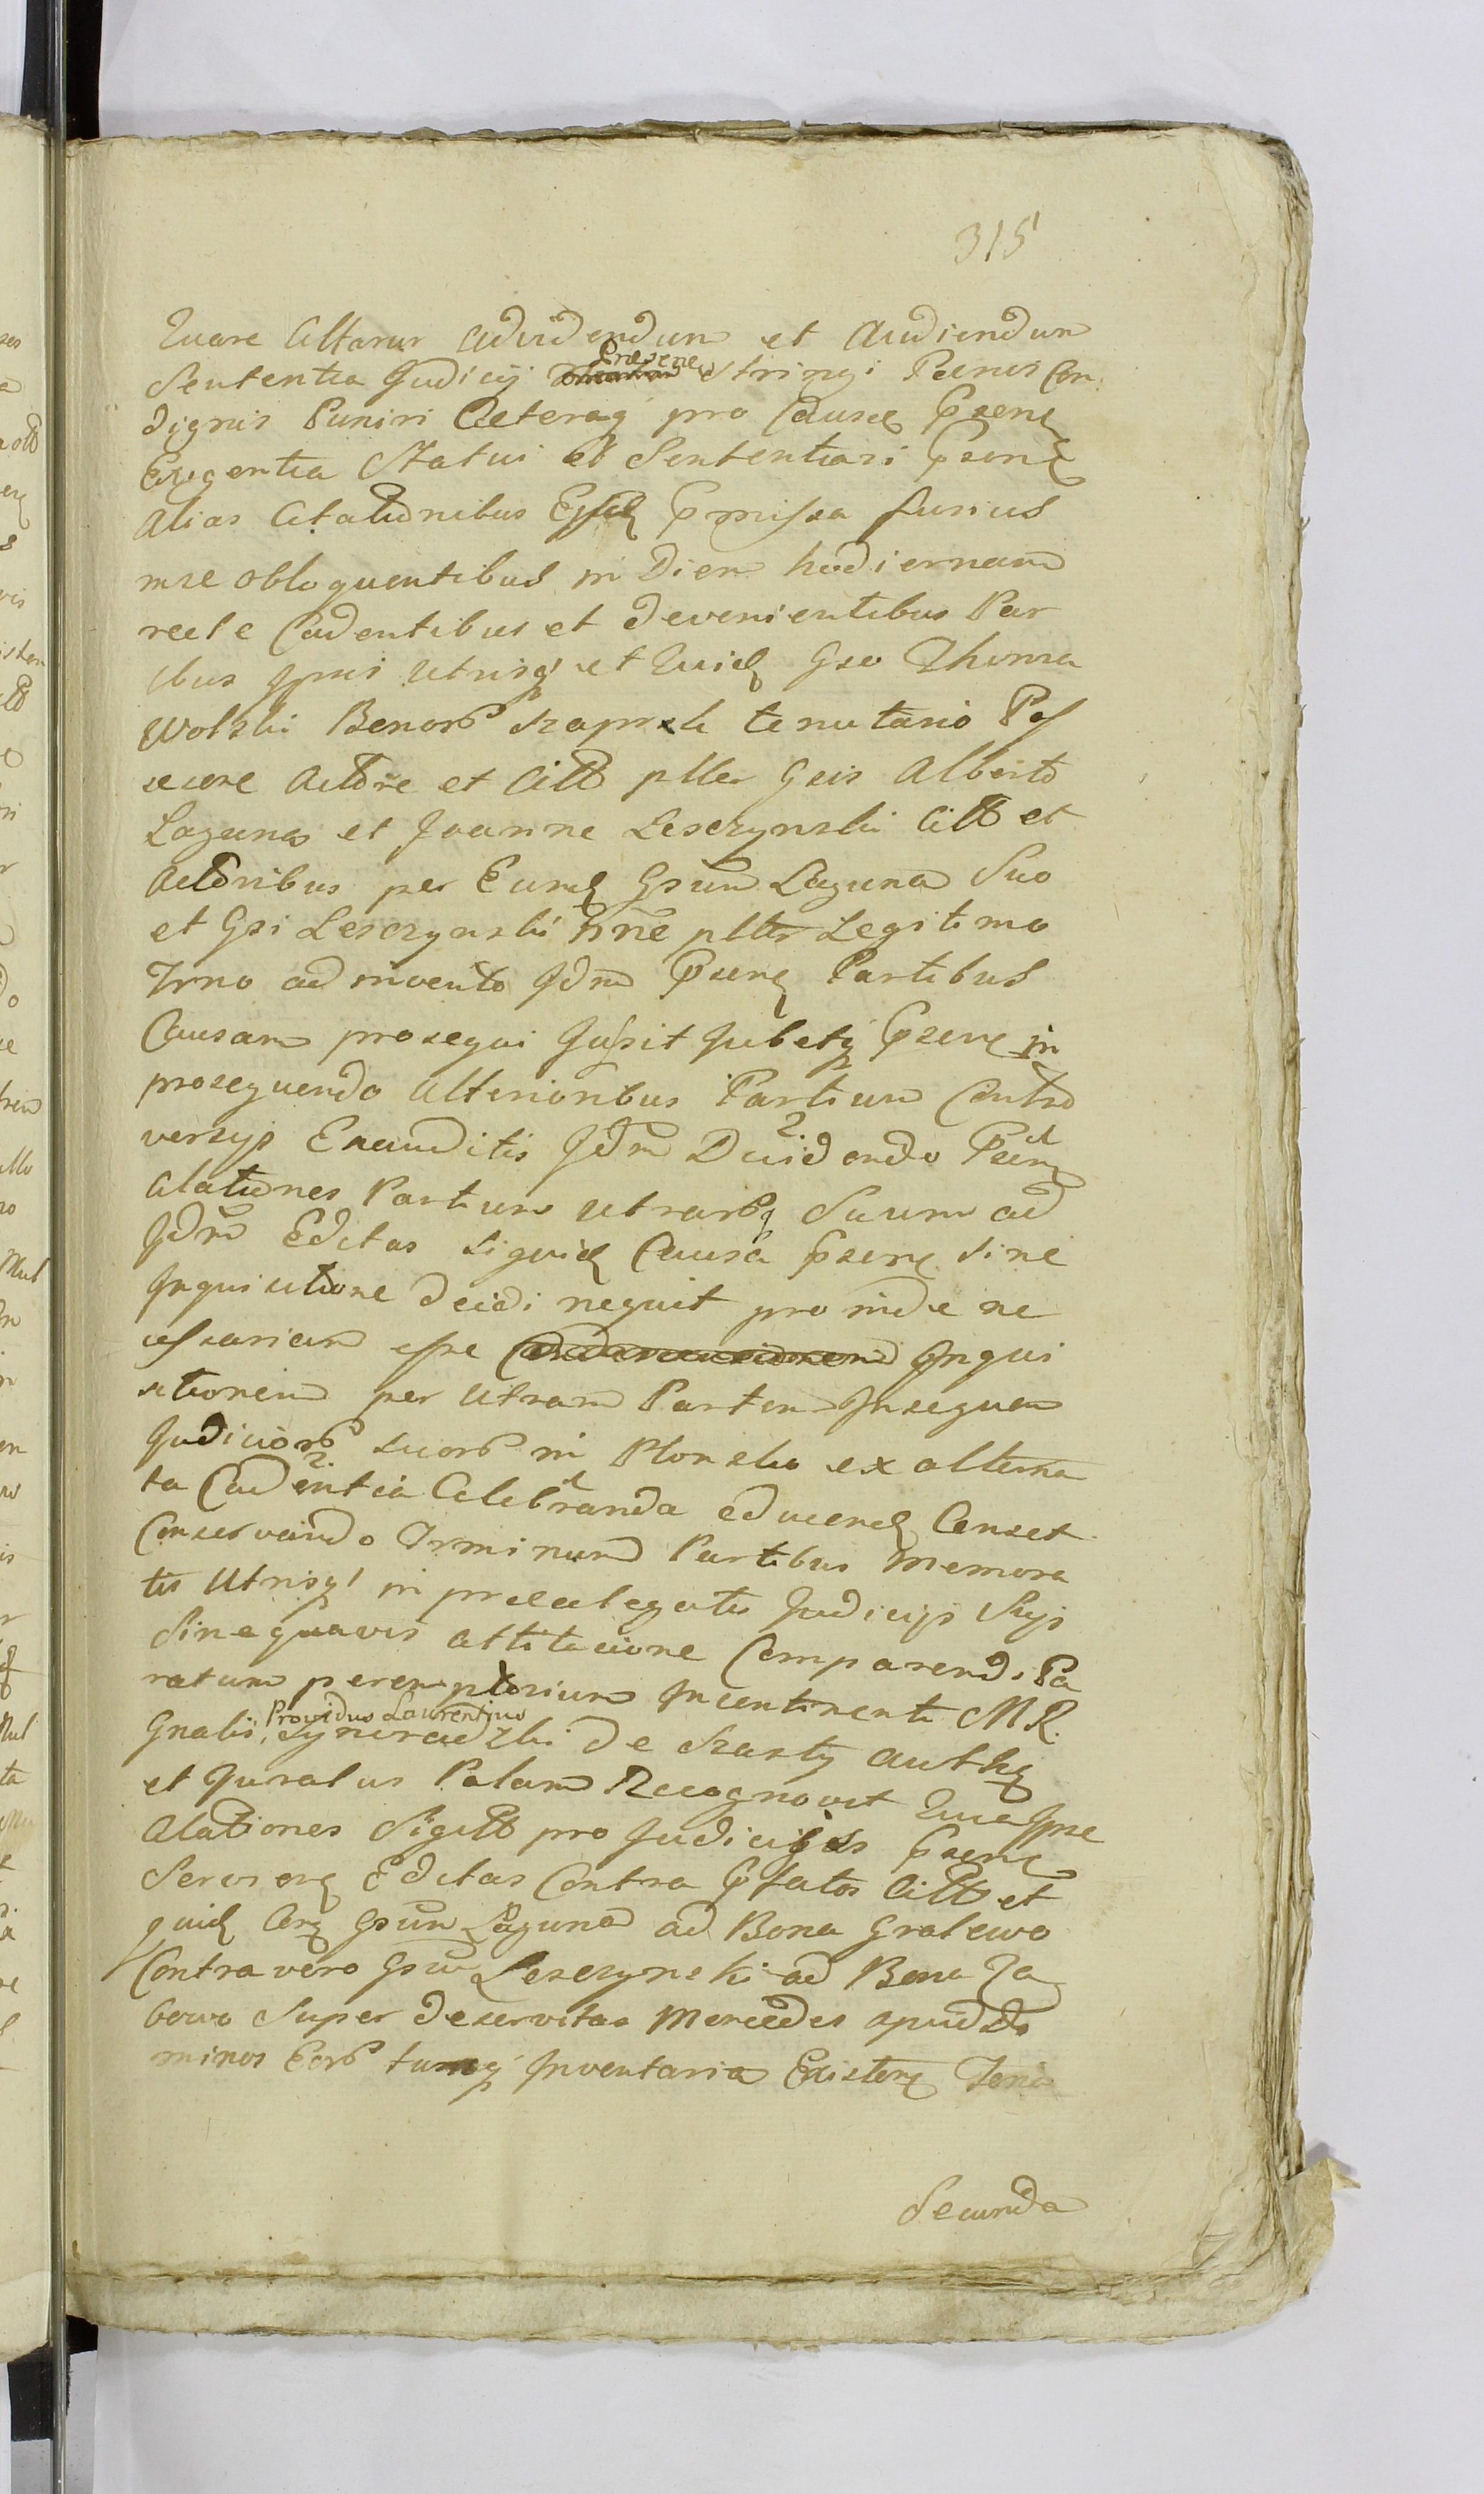 315
Quare Cittantur ad videndum et Audiendum
Sententia Judicij Præsene stringi Pænis Con
dignis Puniri Cæteraq pro Causæ Psene
Exigentia Statui et Sententiari Psene
Alias Citationibus Ejsd Pmissa fusius
in se obloquentibus in Diem hodiernam
recte Cadentibus et devenientibus Par
tibus Ipsis Utrisq et Quid Gso Thoma
Wolski Benorb tenutario Pos
sesore Actore et Citto ptter Gsis Alberto
Laguna et Joanne Lesczynski Citt et
Actoribus per Eund Gsum Laguna Suo
et Gsi Lesczynski nne ptter Legitimo
Trno ad invento Jdm Psene Partibus
Causam prosequi Jussit Jubetq Psene in
prosequendo Ulterioribus Partium Contro
versys Exauditis Jdm Decidendo Psene
Alationes Partium Utrarbq Suum ad
Jdm Editas siquid Causa Psene sine
Inquisitione decidi nequit pro inde ne
cessarium esse Inqui
sitionem per Utram Partem Insequen
Judiciorb suorb in Plonsko ex alterna
ta Cadentia Celebranda educend Censet
Conservando Terminum Partibus memora
tis Utrisq in præalegatis Judicijs Suijs
Sine quavis attitacione Comparendi Pa
ratum peremptorium Incontinenti M R.
Gnalis, Providus Laurentius de Szasty auth
et Juratus Palam Recognovit Quia Ipse
Alationes Sigill pro Judicijs Psene
Serviorq Editas Contra Pfatos Citt et
quid Gsum Laguna ad Bona Gralewo
Contra vero Gsum Lesczynski ad Bona Za
bowo Super deservitas Mercedes apud Do
minos Eorb Inventaria Existen Feria
Secunda